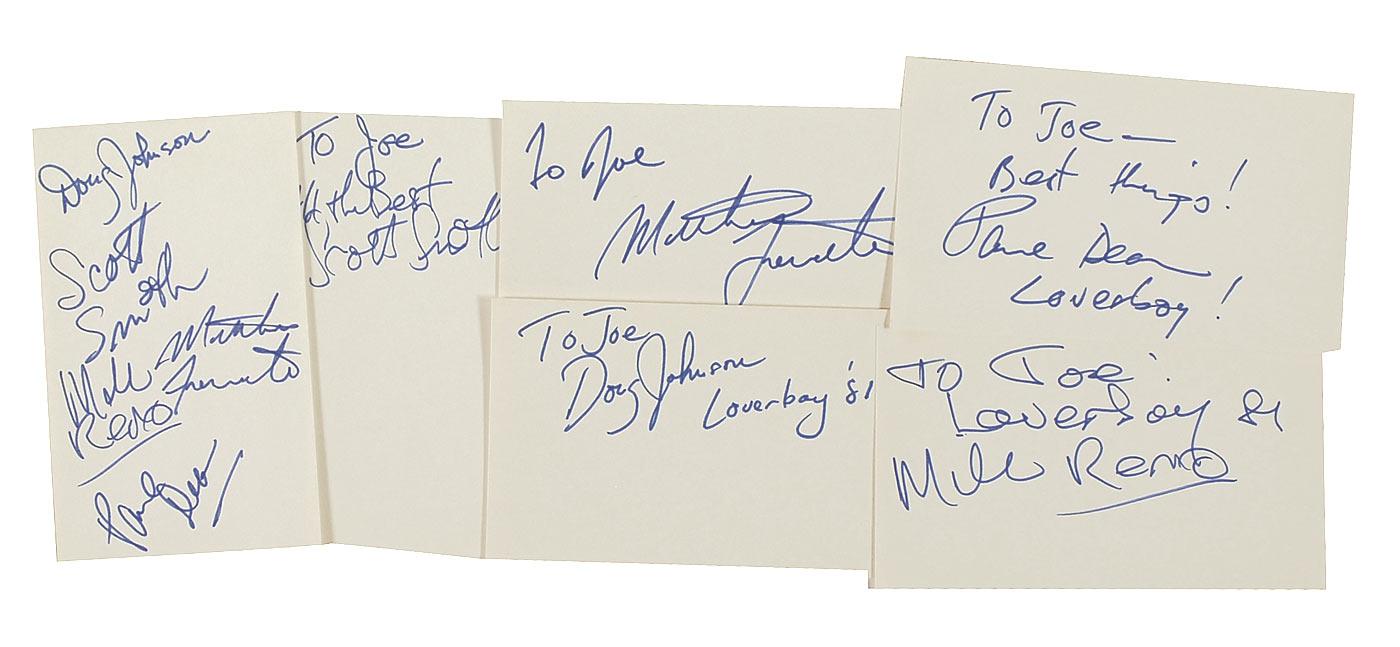 Doug Johnson
Scott
Smith
Mike Matthew
Reno Frenette
Paul Dean
To Joe
All the Best
Scott Smith
To Joe
Matthew
Frenette
To Joe
Doug Johnson
Loverboy '81
To Joe —
Best things!
Paul Dean
Loverboy!
To Joe
Loverboy 81
Mike Reno